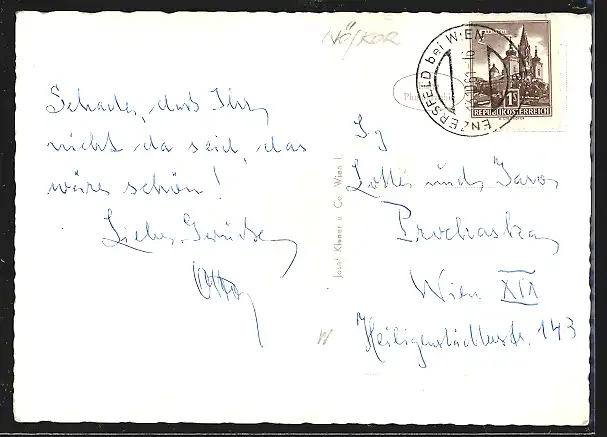 NÖ/KOR
Schade, daß Ihr
nicht da seid, das
wäre schön!
Liebe Grüße
Otto
Josef Klaner u. Co. Wien I.
ENZERSFELD bei WIEN
1 S
REPUBLIK ÖSTERREICH
Lotte und
Prochaska
Wien XIX
Heiligenstädterstr. 143
W